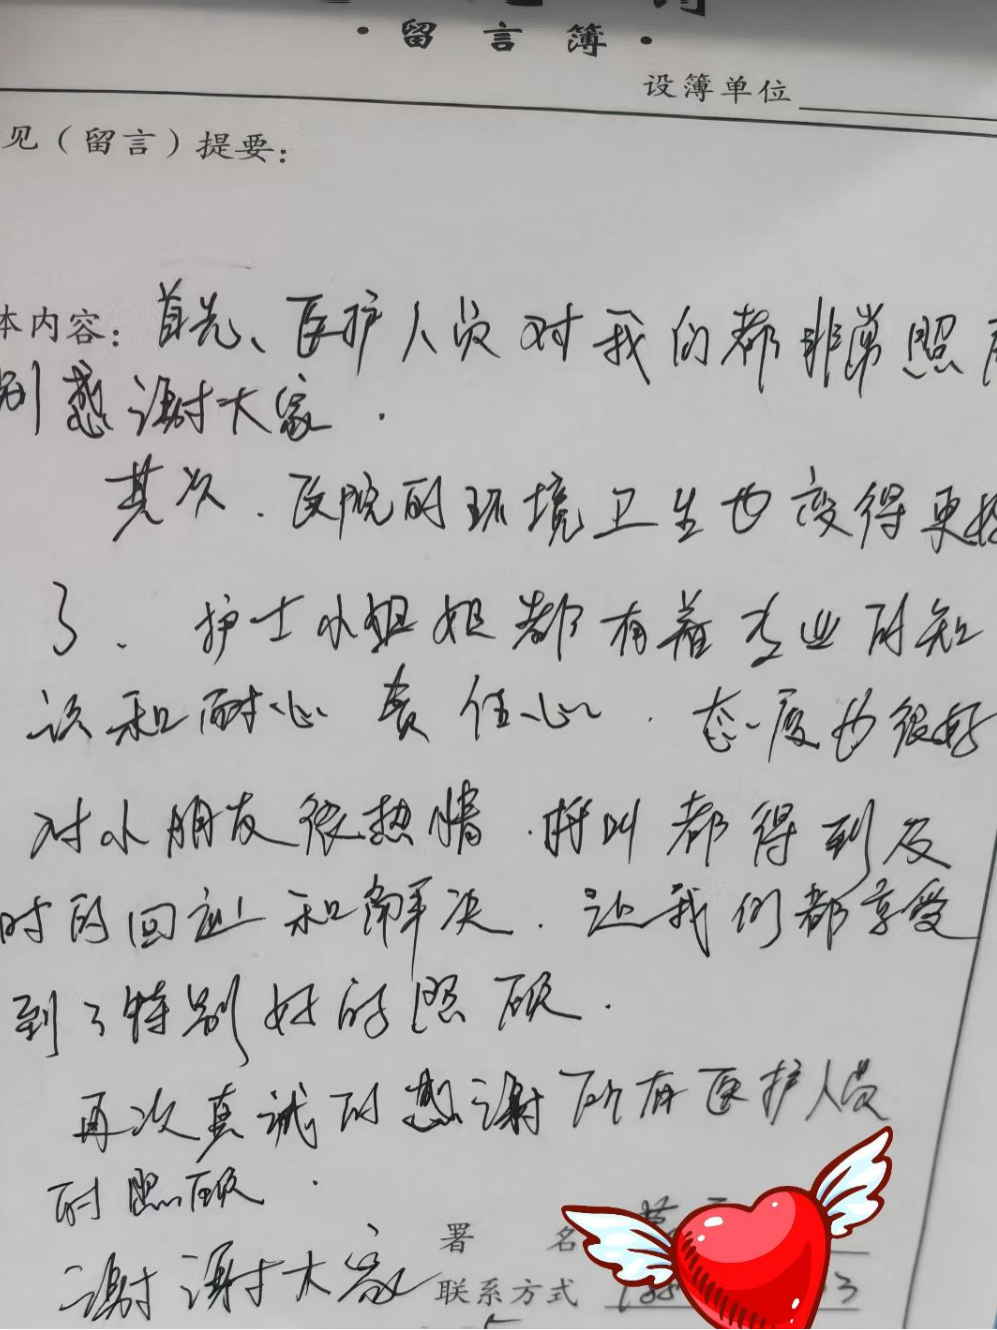 ·留言簿·
设簿单位
见（留言）提要：
本内容：首先、医护人员对我们都非常照顾
别感谢大家.
其次.医院的环境卫生也变得更好
了.护士小姐姐都有着专业的知
识和耐心责任心.态度也很好
对小朋友很热情.呼叫都得到及
时的回应和解决.让我们都享受
到了特别好的照顾.
再次真诚的感谢所有医护人员
的照顾.
谢谢大家
署 名
联系方式